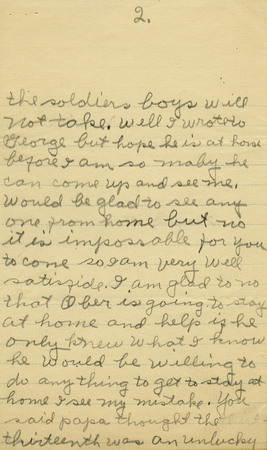 2.
the soldiers boys will
not take. Well I wrote to
George but hope he is at home
before I am so maby he
can come up and see me.
Would be glad to see any
one from home but no
it is impossable for you
to come so I am very well
satisfide. I am glad to no
that Ober is going to stay
at home and help is he
only knew what I know
he would be willing to
do any thing to get to stay at
home I see my mistake. You
said papa thought the
thirteenth was an unlucky